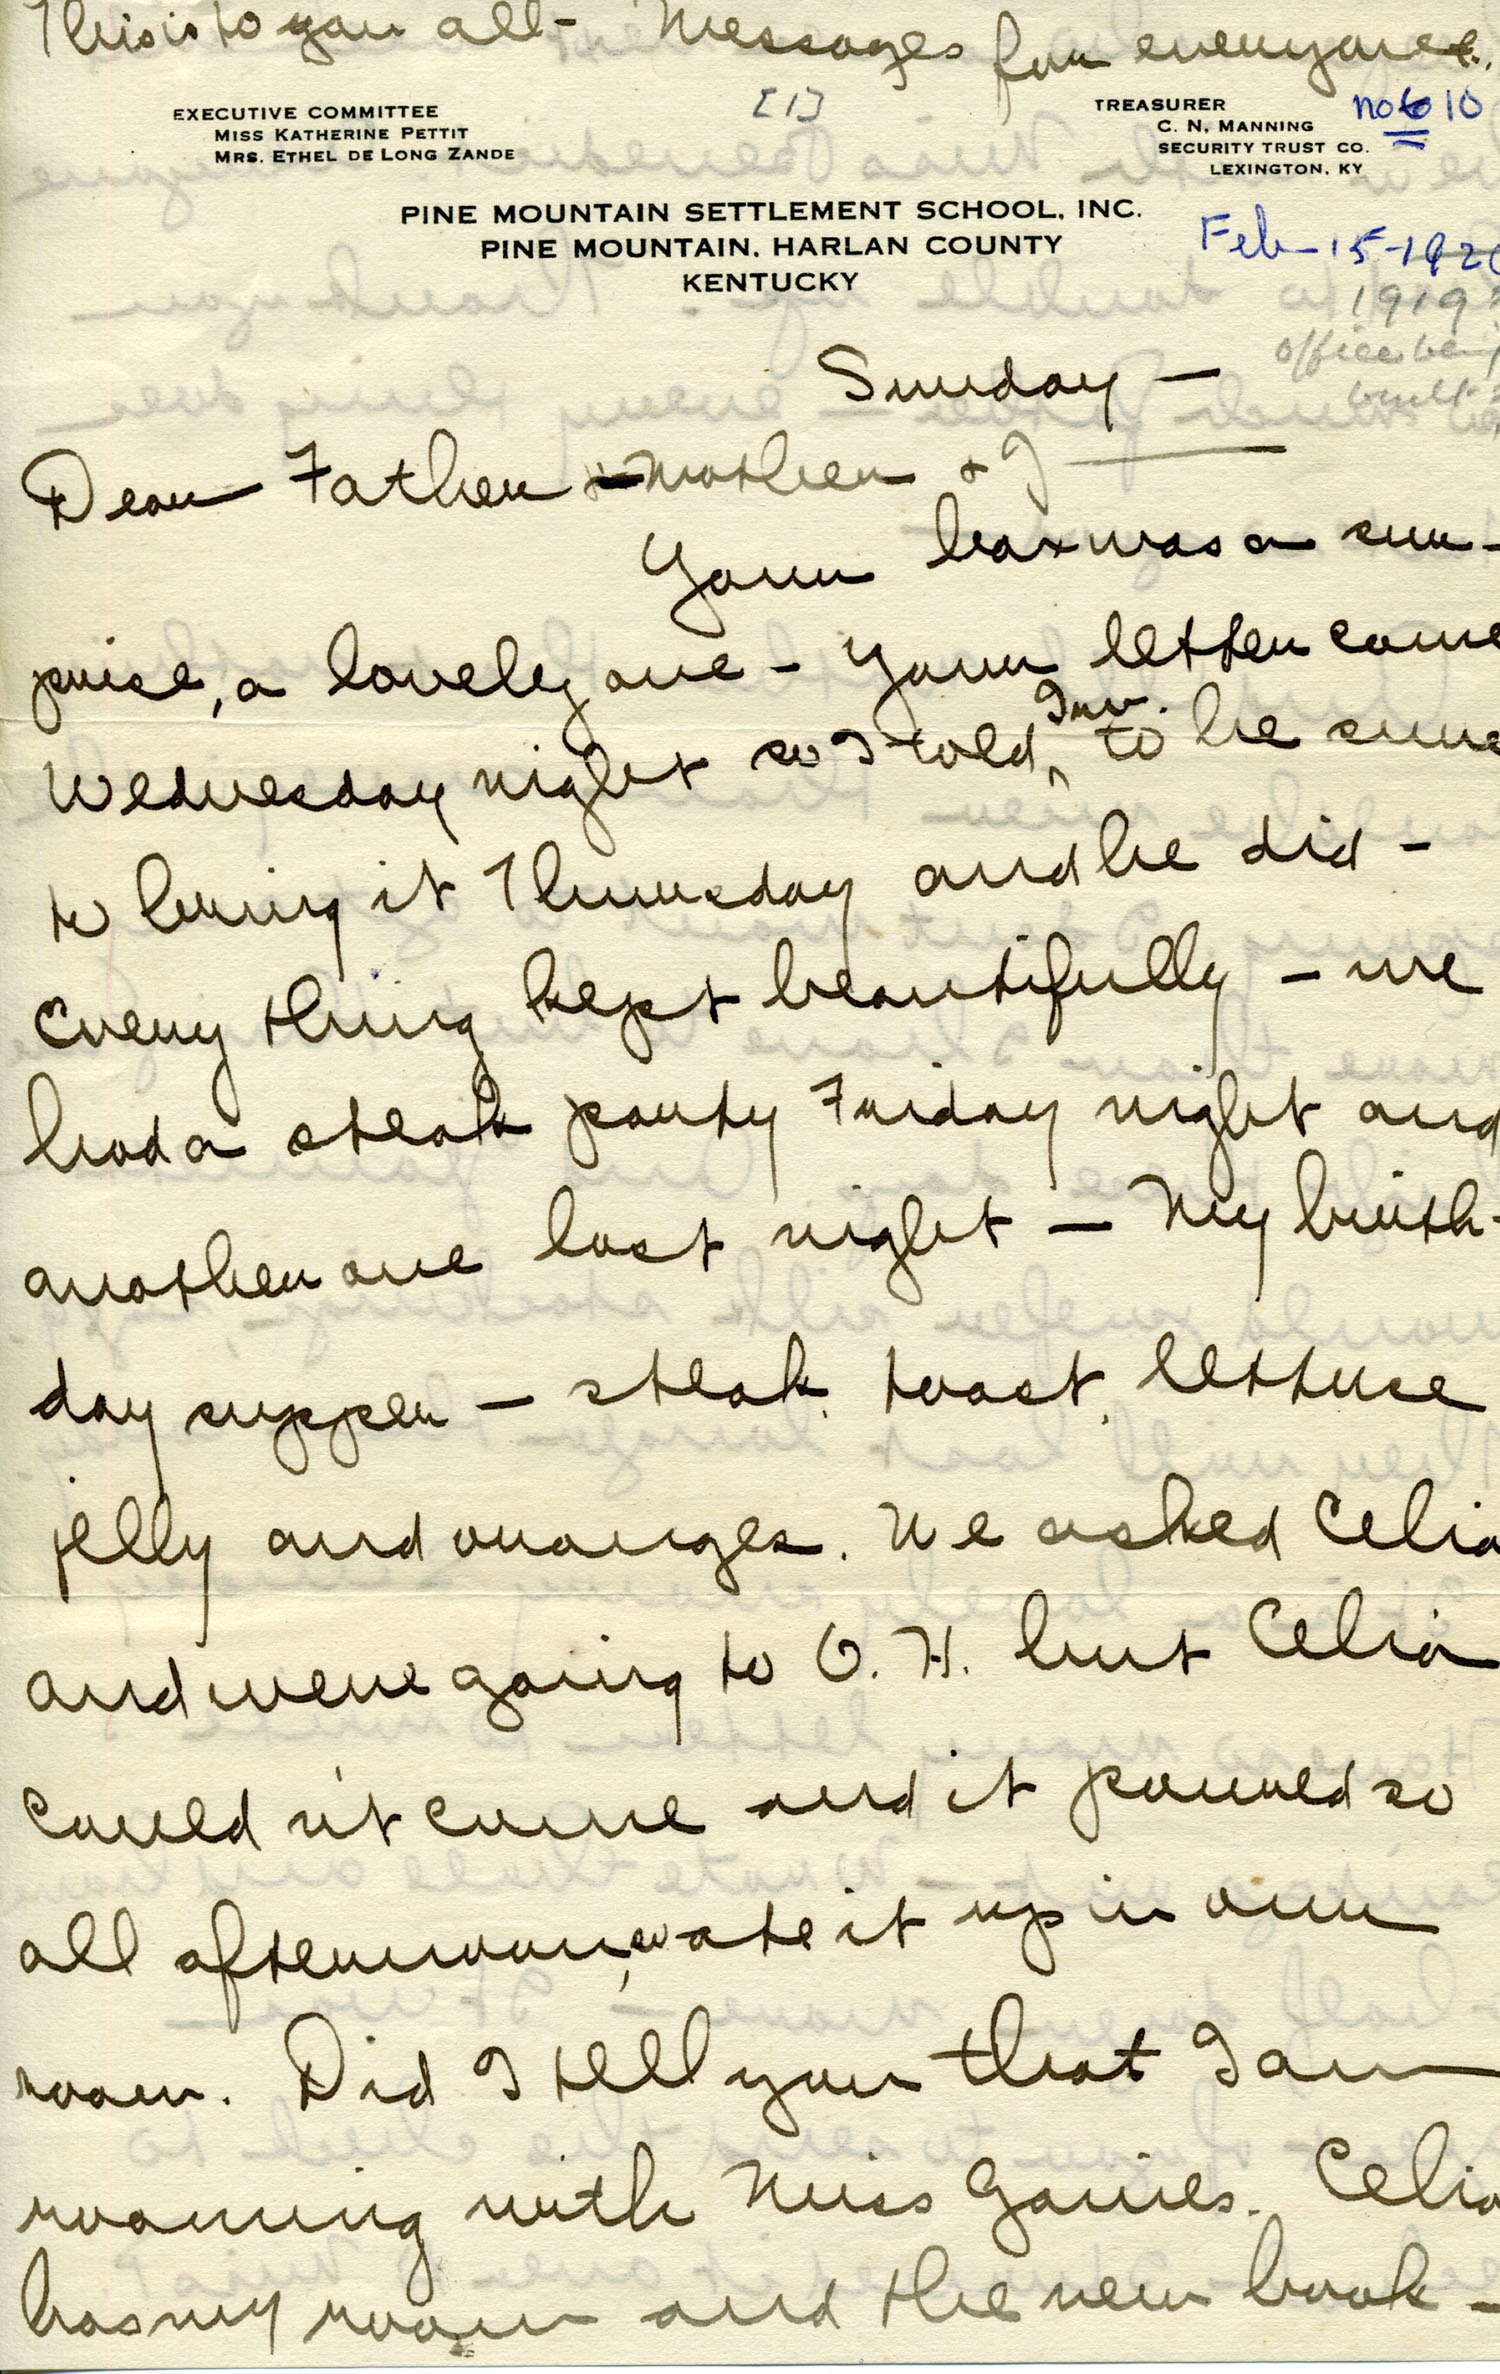 This is to you all - Messages for everyone.
[1]
EXECUTIVE COMMITTEE
MISS KATHERINE PETTIT
MRS. ETHEL DE LONG ZANDE
TREASURER
C. N. MANNING
SECURITY TRUST CO.
LEXINGTON, KY
no 10
PINE MOUNTAIN SETTLEMENT SCHOOL, INC.
PINE MOUNTAIN, HARLAN COUNTY
KENTUCKY
Feb-15-192
1919?
office being
built?
Sunday —
Dear Father & Mother & J
Your box was a sur-
prise, a lovely one - Your letter came
Wednesday night so I told Inv. to be sure
to bring it Thursday and he did -
Every thing kept beautifully - we
had a steak party Friday night and
another one last night — My birth-
day supper - steak, toast, lettuce
jelly and oranges. We asked Celia
and were going to O. H. but Celia
could n't come and it poured so
all afternoon, so ate it up in our
room. Did I tell you that I am
rooming with Miss Gaines. Celia
has my room and the new book-